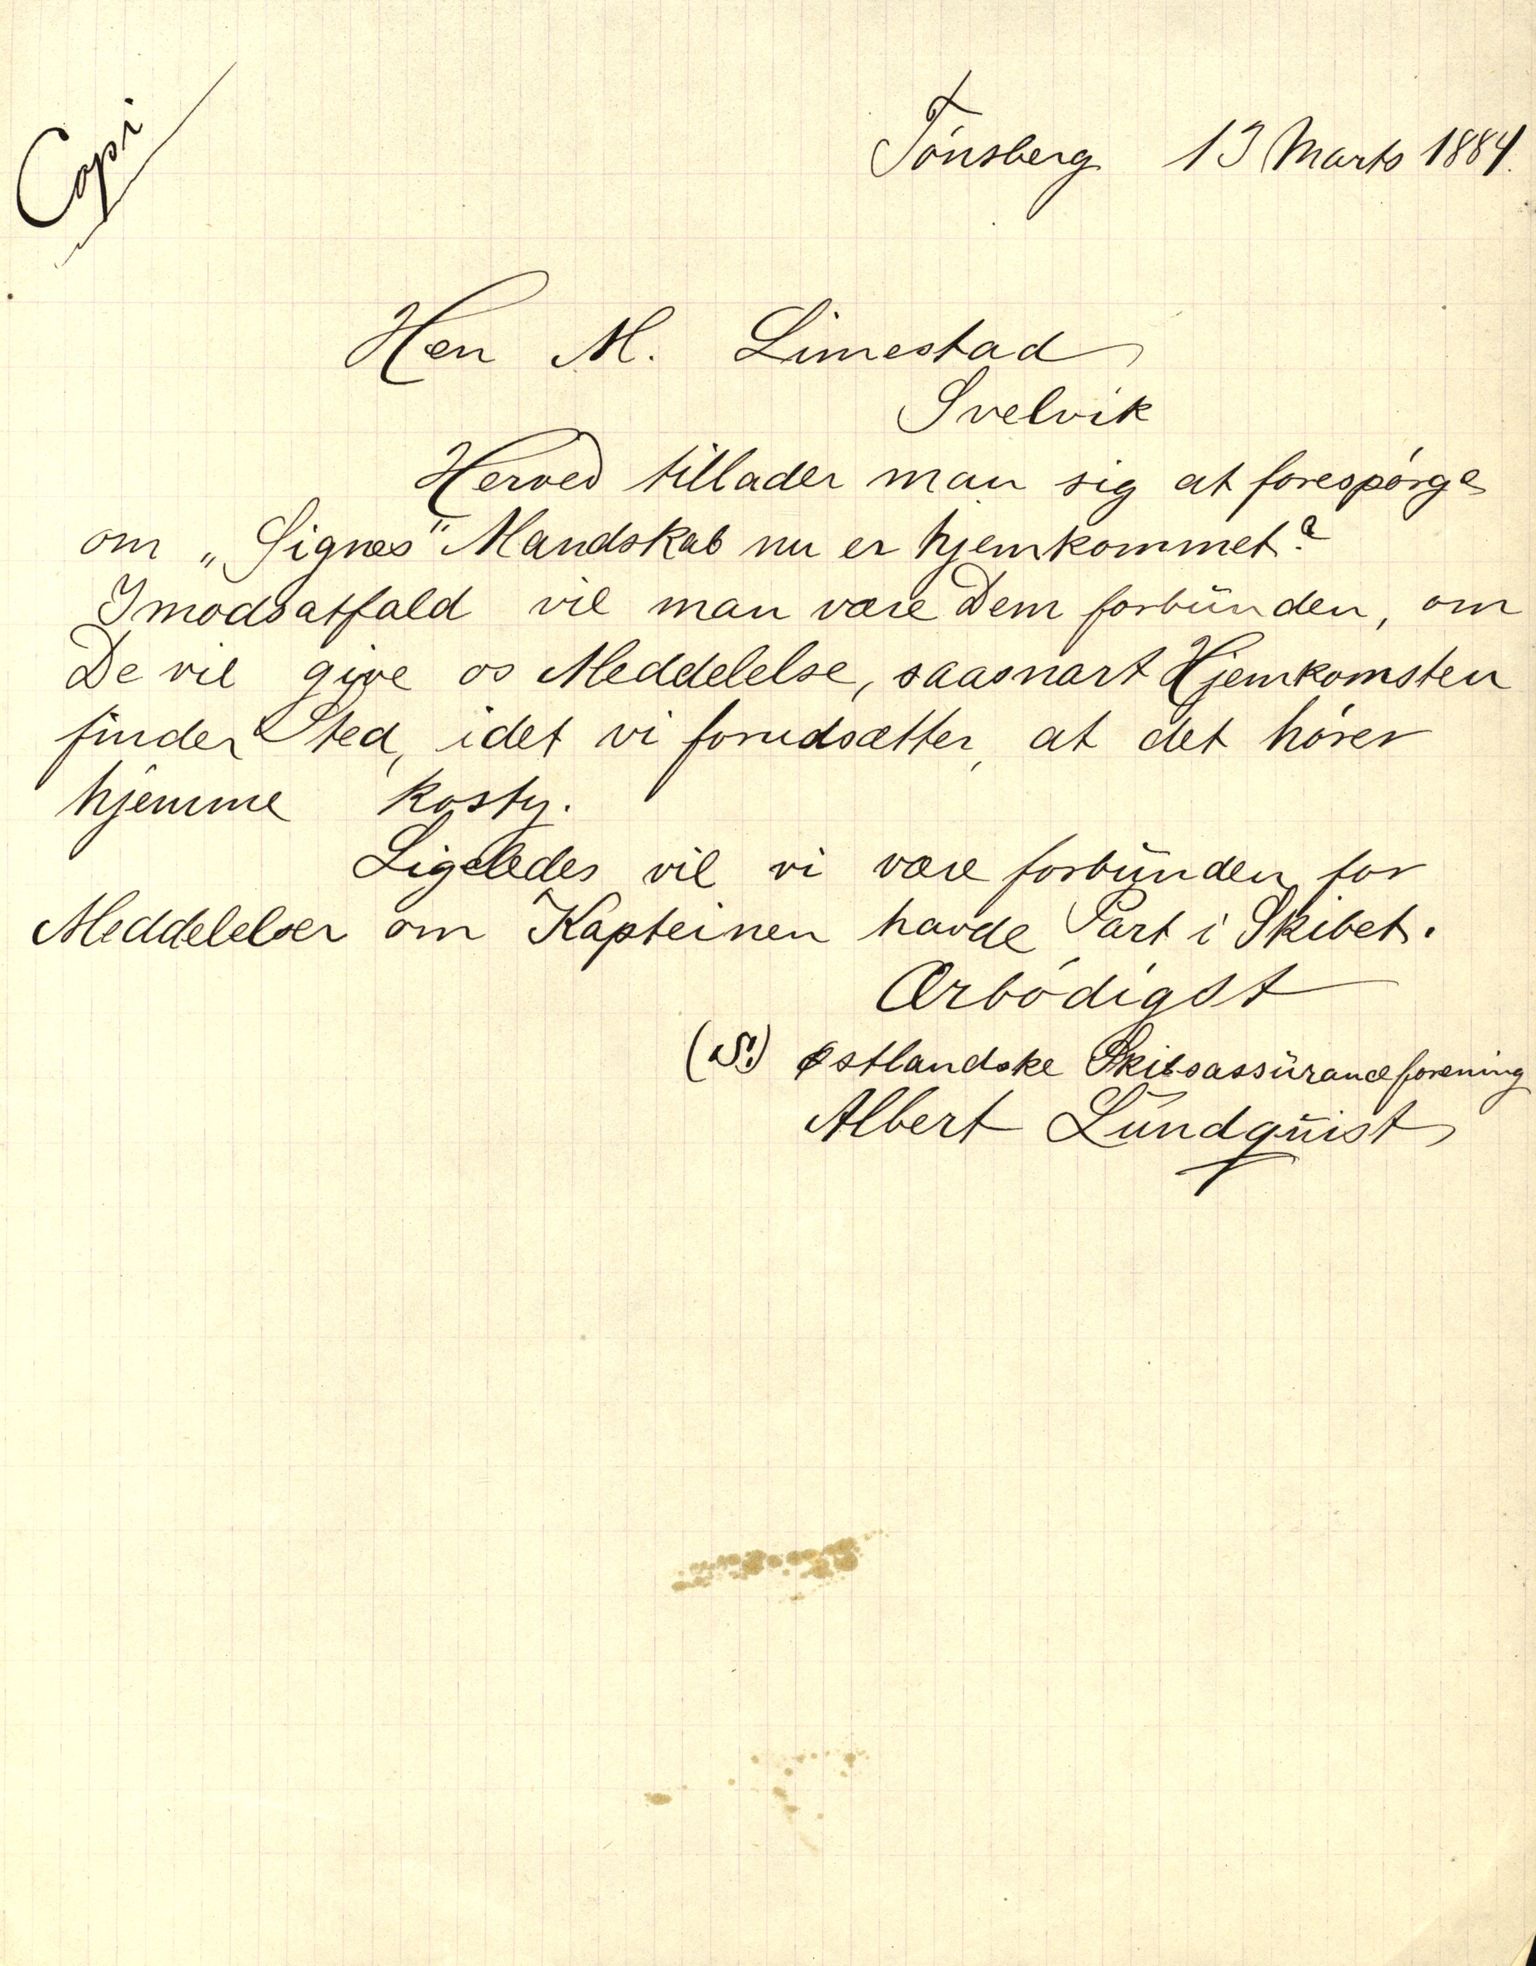 Copi
Tönsberg 13 Marts 1884.
Herr M. Limestad
Svelvik
Herved tillader man sig at forespörge
om „Signes" Mandskab nu er hjemkommet?
Imodsatfald vil man være Dem forbunden, om
De vil give os Meddelelse, saasnart Hjemkomsten
finder Sted, idet vi forudsætter, at det hörer
hjemme
Ligeledes vil vi være forbunden for
Meddelelser om Kapteinen havde Part i Skibet.
Ærbödigst
(S!) Østlandske Skibsassuranceforening
Albert Lundquist